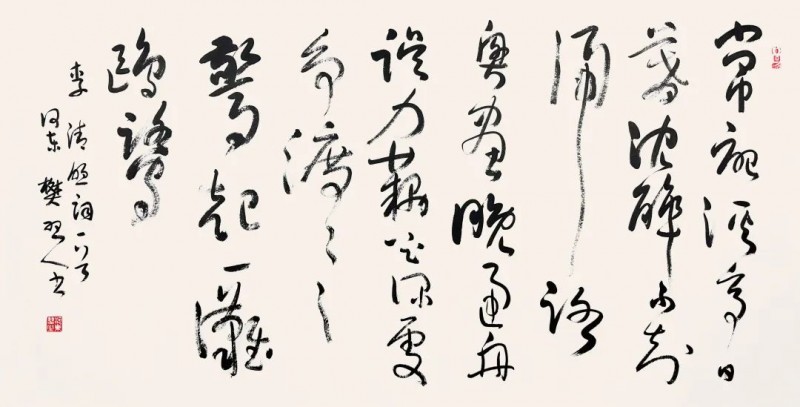 常記溪亭日
暮沈醉不知
歸路
興盡晚迴舟
誤入藕花深處
爭渡〻〻
驚起一灘
鷗鷺
李清照詞一首
河東樊書